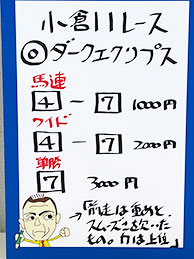 小倉11レース
◎ダークエクリプス
馬連
4-7 1000円
ワイド
4-7 2000円
単勝
7 3000円
→「前走は重めと、
スムーズさを欠いた
もの。力は上位」